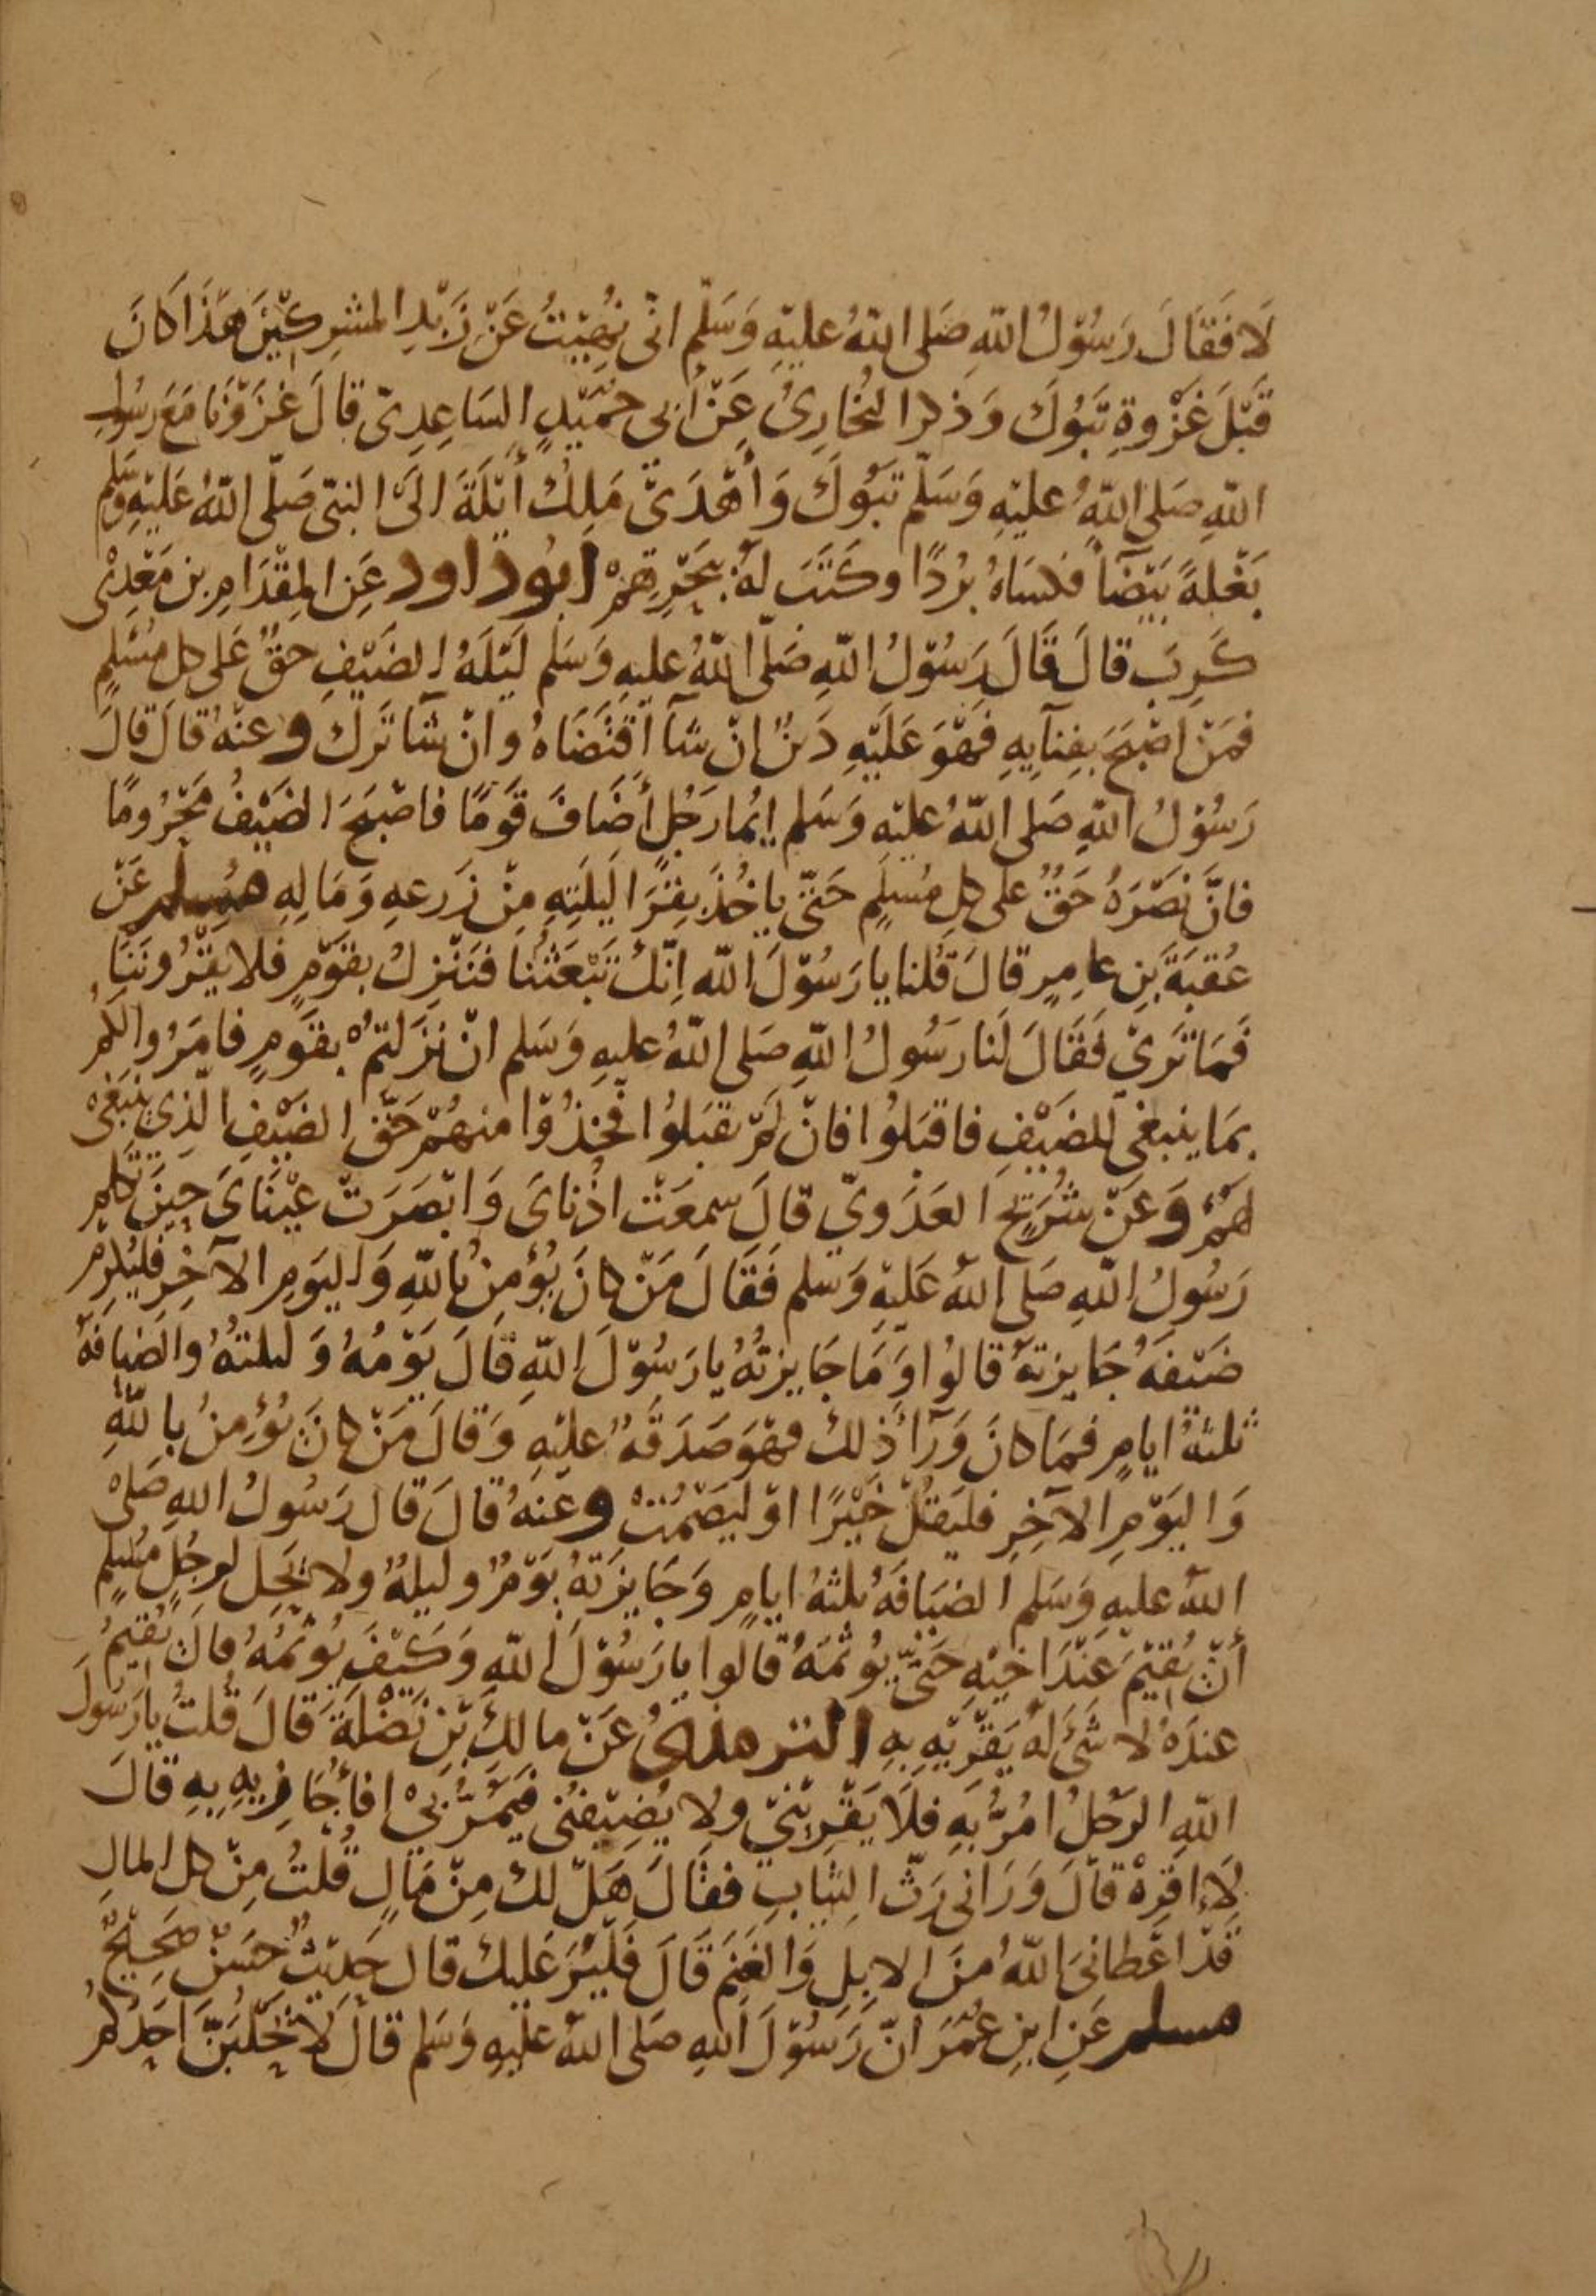 لَا فَقَالَ رَسُوْلُ اللّهِ صَلى اللّهُ عليْهِ وَسَلّم انّى نُهِيْتُ عَنْ زَبْدِ المشرِكيْنَ هَذَا كَانَ
قَبْلَ غَزْوةِ تَبُوكَ وَذكر البُخارِىُ عَنْ أبى حُمَيْدٍ السَاعِدِىّ قالَ غَزَوْنَا مَعَ رسُولِ
اللّهِ صَلى اللّهُ عليْهِ وَسَلّم تَبُوكَ وَأهْدَىْ مَلِكُ أيْلَةَ الَىْ النبّى صَلّى اللّهُ عَلَيْهِ وَسَلم
بَغْلةً بَيْضَآ فكسَاهُ بُرْدًا وكَتَبَ لهُ بِبَحْرِهِمْ ابُوداود عَنِ المِقْدَامِ بن مَعْدِىْ
كَرِبَ قالَ قَالَ رَسُوْلُ اللّهِ صَلّى اللّهُ عليهِ وَسَلم لَيْلَهُ الضَيْفِ حقٌ عَلى كل مُسْلمٍ
فمَنْ اصْبحَ بفِنآيِهِ فهْوَ عَلَيْهِ دَينٌ انْ شآ اقْتَضَاهُ وانْ شَآ تَرَكَ وعنْهُ قالَ قالَ
رَسُوْلُ اللّهِ صَلى اللّهُ عليْهِ وَسَلم ايُما رَجُلٍ أضَافَ قَوْمًا فاصْبَحَ الضَيْفُ مَحْرُومًا
فانَّ نَصْرَهُ حَقٌ علَى كلِ مُسْلمٍ حَتىّ ياخُذَ بِقِرَا لَيلَتِهِ مِنْ زَرعهِ وَمَالِهِ مُسِلم عَنْ
عُقبَةَ بنِ عامِرٍ قالَ قُلنا يا رَسُوْلَ اللّه اِنّكَ تَبْعَثُنا فنَنْزِلُ بقَوْمٍ فلا يقْرُونَنَا
فَمَا تَرَىْ فَقَالَ لَنا رَسُولُ اللّهِ صَلى اللّهُ عليهِ وَسَلم انْ نزَلتمْ بقَومٍ فامَرُوا لكُمْ
بمَا ينبغى للضَيْفِ فاقبَلُوا فانْ لَمْ يقبَلُوا فخذُوْا منهُمْ حَقّ الضَيْفِ الّذِي ينْبَغىْ
لهُمْ وَعَنْ شُرَيْحٍ العَدَويّ قالَ سمعَتْ اذُناىَ وَابْصَرَتْ عيْنَاىَ حِينَ تَكلم
رَسُولُ اللّهِ صَلى اللّهُ عَلَيْهِ وَسَلم فَقَالَ مَنْ كانَ يُؤمنُ باللّهِ وَاليَومِ الآخِرِ فليُكرِمْ
ضَيْفَهُ جَايِزتهُ قالوُا وَمَا جَايِزتُهُ يا رَسُوْلَ اللّهِ قَالَ يَوْمُهُ وَليلتهُ والضيافَهُ
ثلثهُ ايامٍ فمَا كانَ وَرآ ذلكَ فهْوَ صَدَقهٌ عليْهِ وَقالَ مَنْ كانَ يُؤمِنُ باللّهِ
وَاليَوْمِ الآخِرِ فليَقُلْ خَيْرًا اوْ ليَصْمُتْ وعنهُ قالَ قال رَسُولُ اللهِ صَلىْ
اللّهُ عليهِ وَسَلم الضيَافَهُ ثلثهُ ايامٍ وَجَايزَتهُ يَوْمٌ وليلهٌ ولا يحَل لرجُلٍ مسُلمٍ
أنْ يُقيْمَ عَنْدَ اخيْهِ حَتىّ يُوثمَهُ قالوا يا رَسُوْلَ اللّهِ وَكَيْفَ يُوثمُهُ قالَ يُقيْمُ
عندَهُ لا شَئَ لهُ يَقْرِيْهِ بهِ الترمذىُ عَنْ مالكِ بْنِ نَضْلةَ قالَ قُلتُ يا رَسُولَ
اللّهِ الرَجُلُ امُرُّ بهِ فلَا يَقْرِيْنىْ ولا يُضِيْفنُى فيَمُرُّ بىْ افأجَازِيهِ بهِ قالَ
لَا اقرِهْ قالَ وَرَانى رَثّ الِثيابِ فقالَ هَلْ لكَ مِنْ مَالٍ قُلْتُ مِنْ كل المالِ
قَدْ اعْطانىَ اللّهُ منَ الابِلِ وَالغَنَم قَالَ فَلْيُرَ عَليكَ قال حَديْثٌ حَسَنٌ صَحِيْحٌ
مسلم عَنِ ابنِ عمَرَ انّ رَسُوْلَ اللهِ صَلى اللّهُ عليْهِ وَسَلم قالَ لَا يَحْلُبَنَّ احَدُكمْ